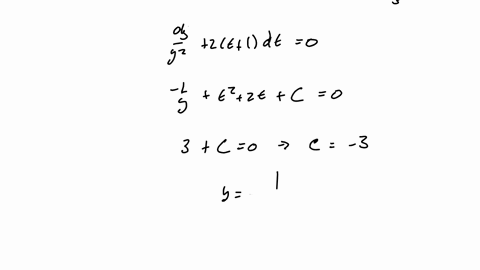 dy/y² + 2(t+1) dt = 0
-1/y + t² + 2t + C = 0
3 + C = 0 → C = -3
y = 1